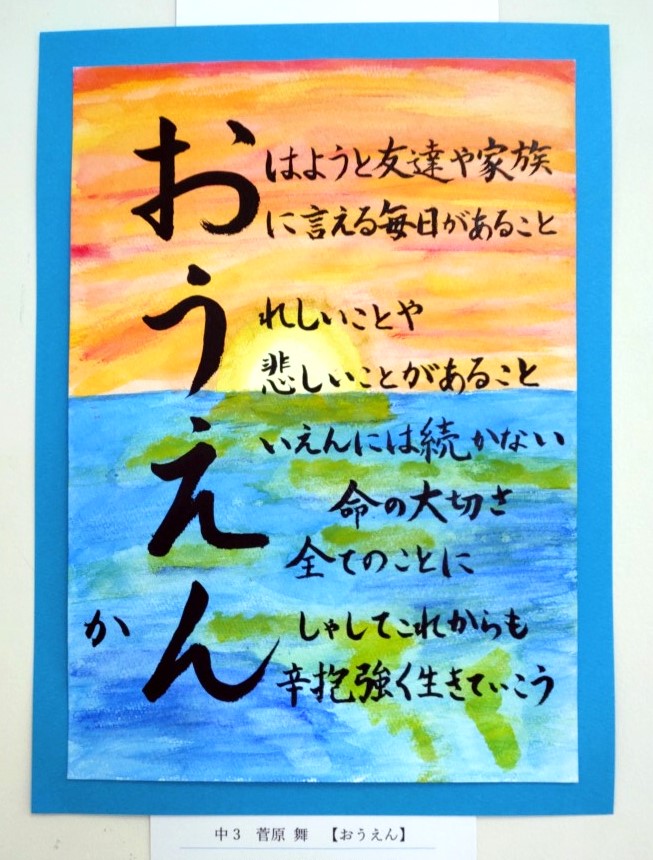 おはようと友達や家族
に言える毎日があること
うれしいことや
悲しいことがあること
えいえんには続かない
命の大切さ
全てのことに
かんしゃしてこれからも
辛抱強く生きていこう
中3 菅原 舞 【おうえん】